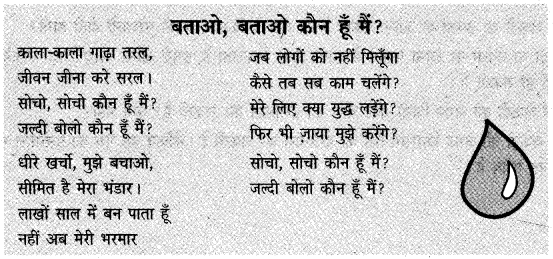 बताओ, बताओ कौन हूँ मैं?
काला-काला गाढ़ा तरल,
जीवन जीना करे सरल।
सोचो, सोचो कौन हूँ मैं?
जल्दी बोलो कौन हूँ मैं?
धीरे खर्चो, मुझे बचाओ,
सीमित है मेरा भंडार।
लाखों साल में बन पाता हूँ
नहीं अब मेरी भरमार
जब लोगों को नहीं मिलूँगा
कैसे तब सब काम चलेंगे?
मेरे लिए क्या युद्ध लड़ेंगे?
फिर भी ज़ाया मुझे करेंगे?
सोचो, सोचो कौन हूँ मैं?
जल्दी बोलो कौन हूँ मैं?